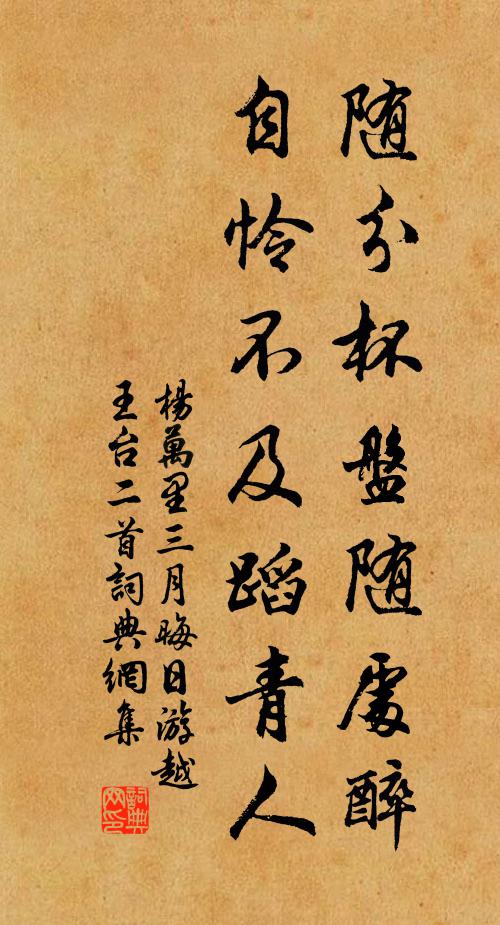 随分杯盤随處醉
自怜不及蹈青人
楊萬里三月晦日游越
王台二首詞典網集
詞典
网印